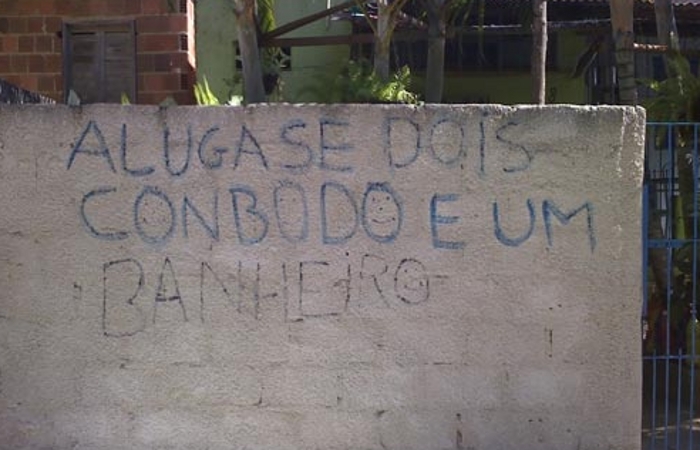 ALUGASE DOIS
CONBODO E UM
BANHEIRO